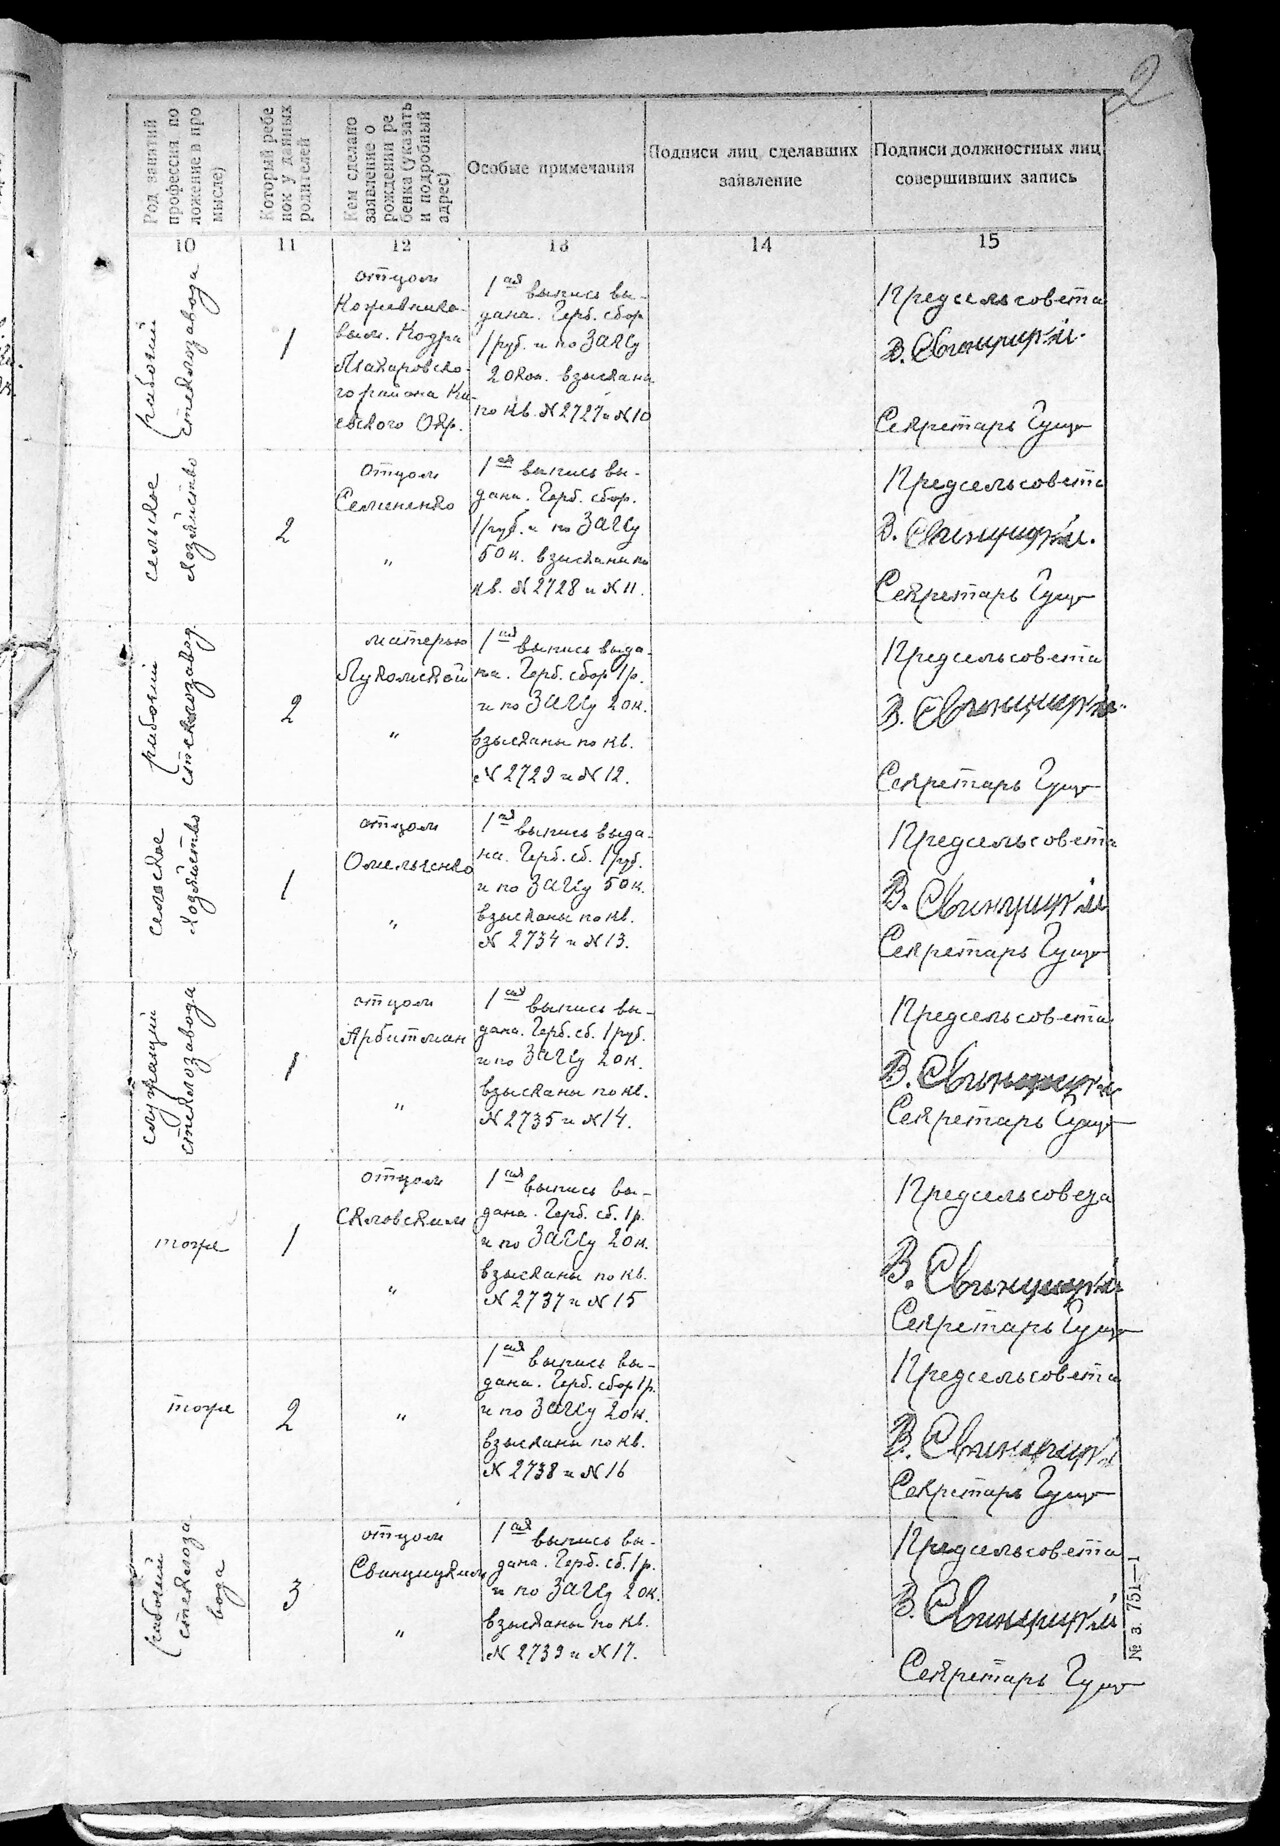 2
Род занятий
профессия по
ложение в про
мысле)
Который ребе
нок у данных
родителей
Кем сделано
заявление о
рождении ре
бенка (указать
и подробный
адрес)
Особые примечания
Подписи лиц сделавших
заявление
Подписи должностных лиц
совершивших запись
10
11
12
13
14
15
рабочий
стеклозавода
1
отцом
Кожевнико-
вым. Кодра
Макаровско-
го района Ки-
евского Окр.
1ая выпись вы-
дана. Герб. сбор
1 руб. и по ЗАГСу
20 коп. взысканы
по кв. № 2727 и № 10
Председьсовета
В. Свинцицкий.
Секретарь
сельское
хозяйство
2
отцом
Семененко
"
1ая выпись вы-
дана. Герб. сбор.
1 руб. и по ЗАГСу
50 к. взысканы по
кв. № 2728 и № 11.
Предсельсовета
В. Свинцицкий.
Секретарь
рабочий
стеклозавод.
2
матерью
Лукомской
"
1ая выпись выда-
на. Герб. сбор 1 р.
и по ЗАГСу 20 к.
взысканы по кв.
№ 2729 и № 12.
Предсельсовета
В. Свинцицкий.
Секретарь
сельское
хозяйство
1
отцом
Омельченко
"
1ая выпись выда-
на. Герб. сб. 1 руб.
и по ЗАГСу 50 к.
взысканы по кв.
№ 2734 и № 13.
Предсельсовета
В. Свинцицкий
Секретарь
служащий
стеклозавода
1
отцом
Арбитман
"
1ая выпись вы-
дана. Герб. сб. 1 руб.
и по ЗАГСу 20 к.
взысканы по кв.
№ 2735 и № 14.
Предсельсовета
В. Свинцицкий
Секретарь
тоже
1
отцом
"
1ая выпись вы-
дана. Герб. сб. 1 р.
и по ЗАГСу 20 к.
взысканы по кв.
№ 2737 и № 15
Предсельсовета
В. Свинцицкий
Секретарь
тоже
2
"
1ая выпись вы-
дана. Герб. сбор 1 р.
и по ЗАГСу 20 к.
взысканы по кв.
№ 2738 и № 16
Предсельсовета
В. Свинцицкий
Секретарь
рабочий
стеклоза
вода
3
отцом
Свинцицким
"
1ая выпись вы-
дана. Герб. сб. 1 р.
и по ЗАГСу 20 к.
взысканы по кв.
№ 2739 и № 17.
Предсельсовета
В. Свинцицкий
Секретарь
№ з. 751—1